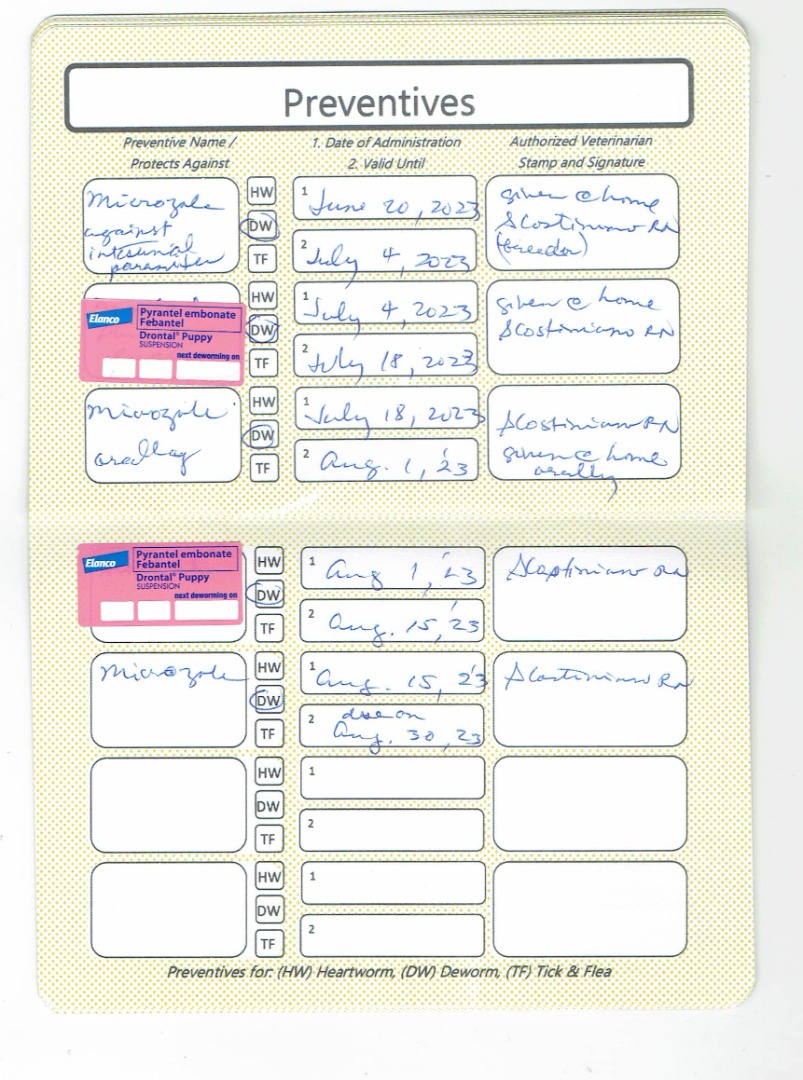 Preventives
Preventive Name /
Protects Against
1. Date of Administration
2. Valid Until
Authorized Veterinarian
Stamp and Signature
Microzole
against
intestinal
HW
DW
TF
1 June 20, 2023
2 July 4, 2023
given @ home
RN
(breeder)
Elanco
Pyrantel embonate
Febantel
Drontal® Puppy
SUSPENSION
next deworming on
HW
DW
TF
1 July 4, 2023
2 July 18, 2023
given @ home
RN
Microzole
orally
HW
DW
TF
1 July 18, 2023
2 Aug. 1, '23
RN
given @ home
orally
Elanco
Pyrantel embonate
Febantel
Drontal® Puppy
SUSPENSION
next deworming on
HW
DW
TF
1 Aug 1, '23
2 Aug. 15, '23
RN
Microzole
HW
DW
TF
1 Aug. 15, '23
2 due on
Aug. 30, 23
RN
HW
DW
TF
1
2
HW
DW
TF
1
2
Preventives for: (HW) Heartworm, (DW) Deworm, (TF) Tick & Flea